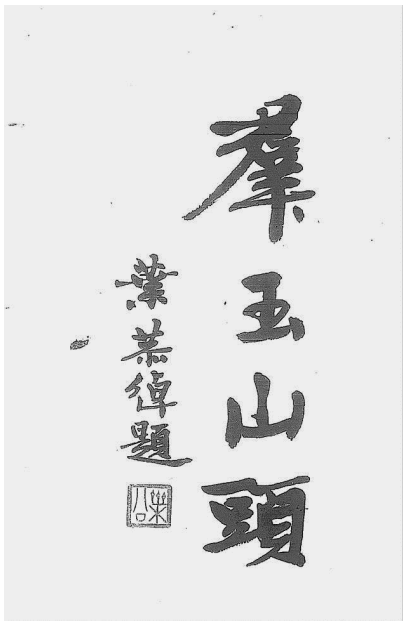 羣玉山頭
葉恭綽題
葉公